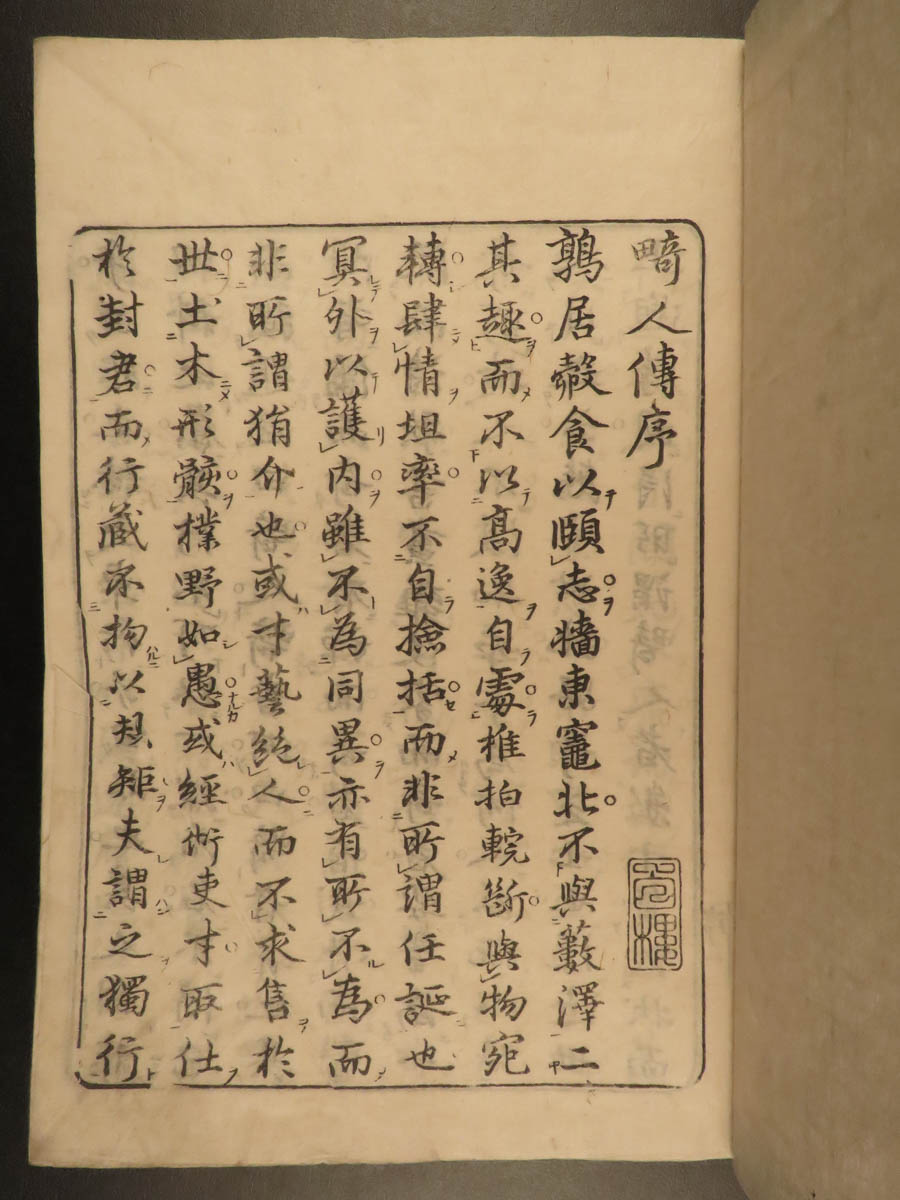 畸人傳序
鶉居鷇食以頤志牆東竈北不與藪澤二
其趣而不以高逸自處椎拍輐斷與物宛
轉肆情坦率不自撿括而非所謂任誕也
冥外以護內雖不為同異亦有所不為而
非所謂狷介也或才藝絕人而不求售於
世土木形骸撲野如愚或經術吏才取仕
於封君而行藏不拘以規矩夫謂之獨行